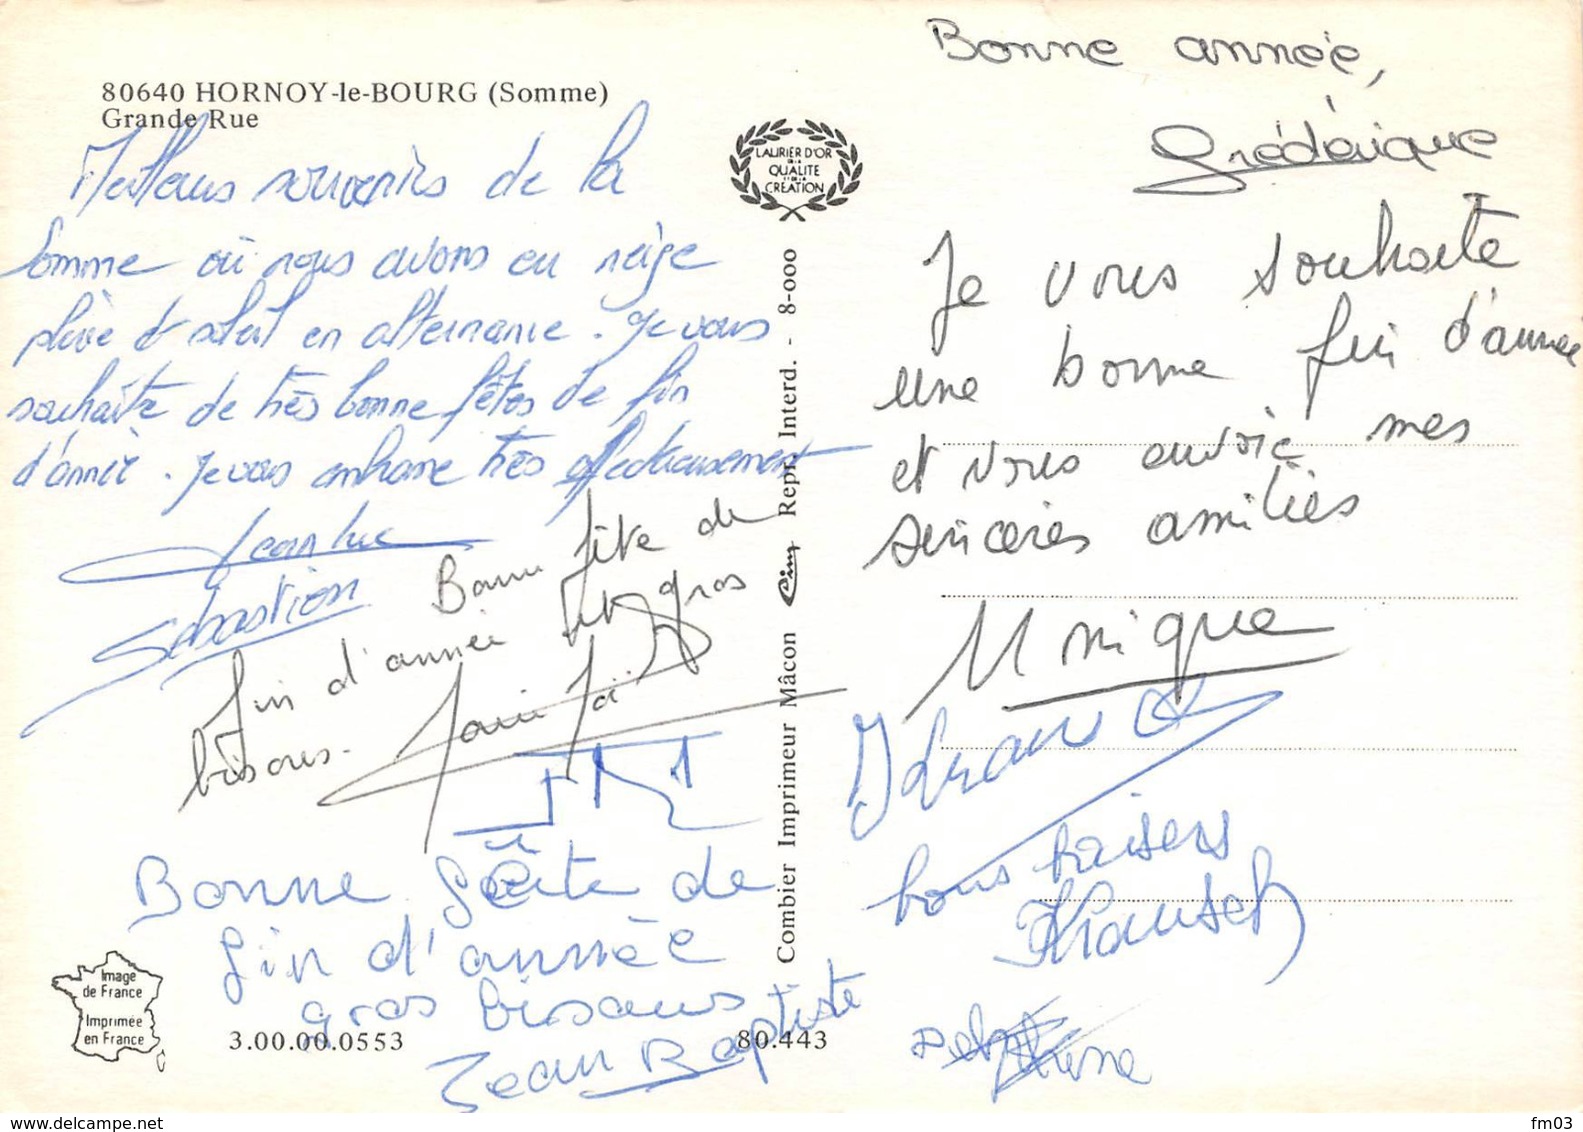 80640 HORNOY-le-BOURG (Somme)
Grande Rue
Meilleurs souvenirs de la
Somme où nous avons eu neige
pluie & soleil en alternance. Je vous
souhaite de très bonne fêtes de fin
d'année. Je vous embrasse très affectueusement
Jean Luc
Sébastien
Bonne fête de
fin d'année gros
bisous.
Bonne fête de
fin d'année
gros bisous
Jean Baptiste
Image
de France
Imprimée
en France
3.00.00.0553
80.443
LAURIER D'OR
DE LA
QUALITE
ET DE LA
CREATION
Combier Imprimeur Mâcon Cim Repr. Interd. - 8-000
Bonne année,
Frédérique
Je vous souhaite
une bonne fin d'année
et vous envoie mes
sincères amitiés
Monique
bons baisers
Delphine
fm03